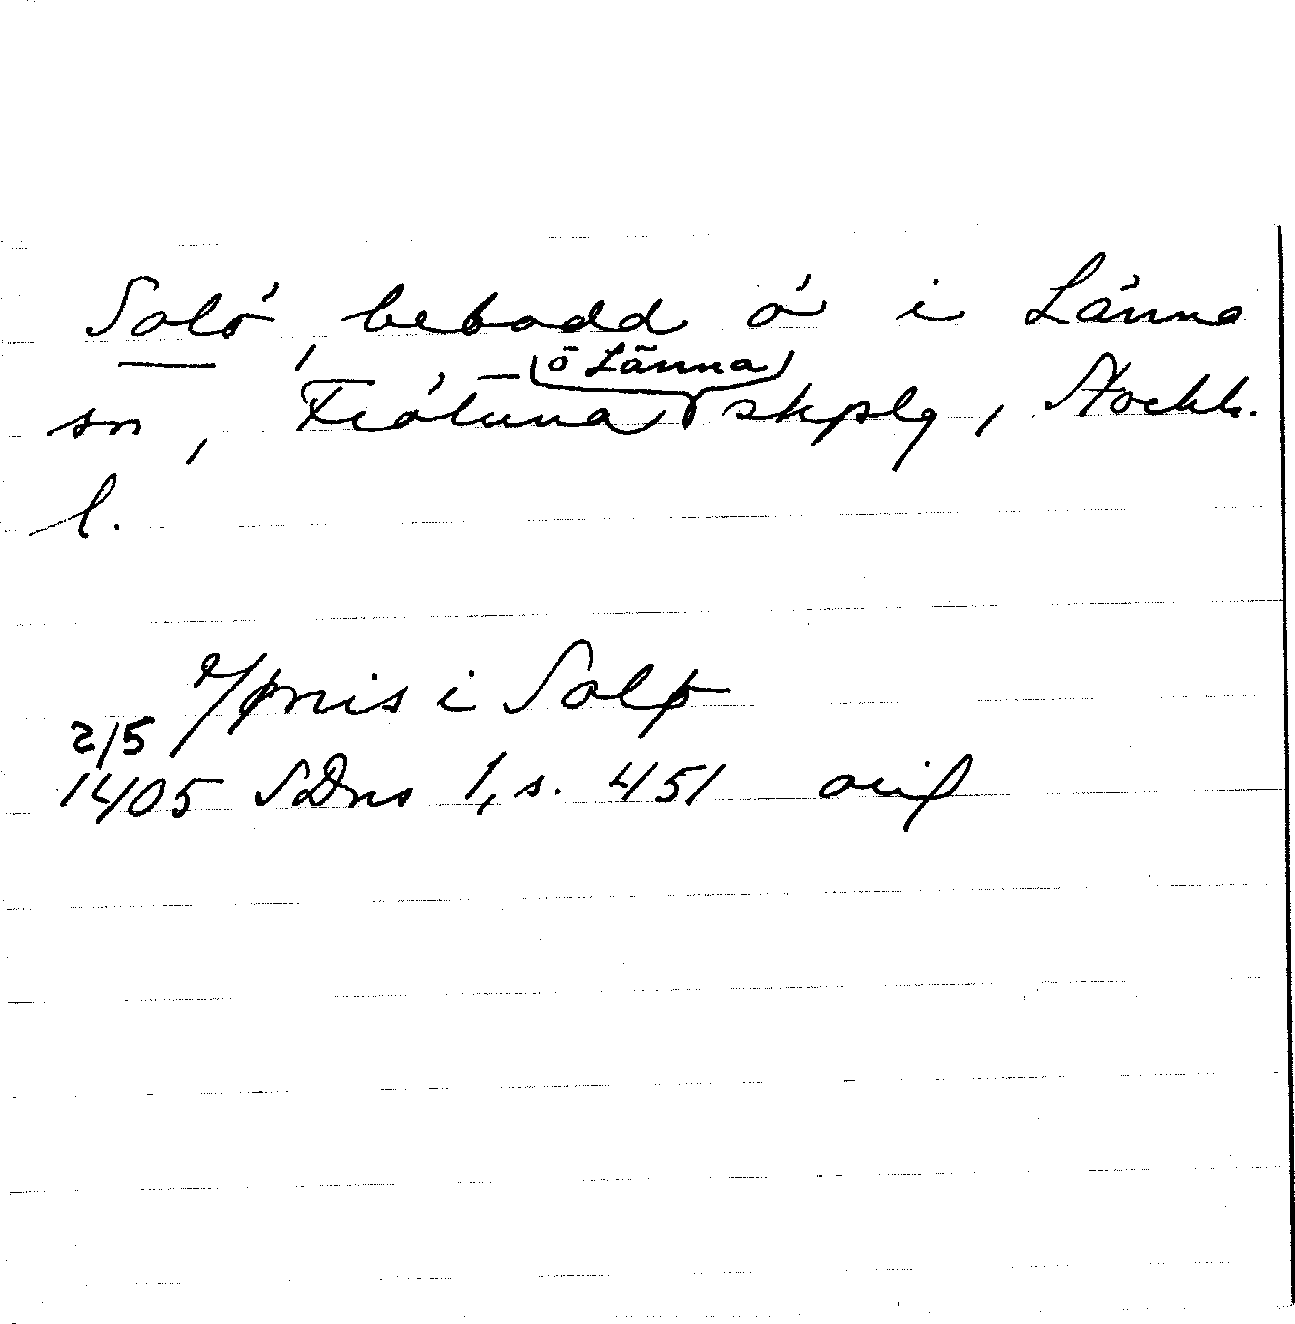 Solö, bebodd ö i Länna
sn, Frötuna – (ö Länna) skplg, Stockh.
l.
i Solø
2/5
1405 SDns 1, s. 451 avif